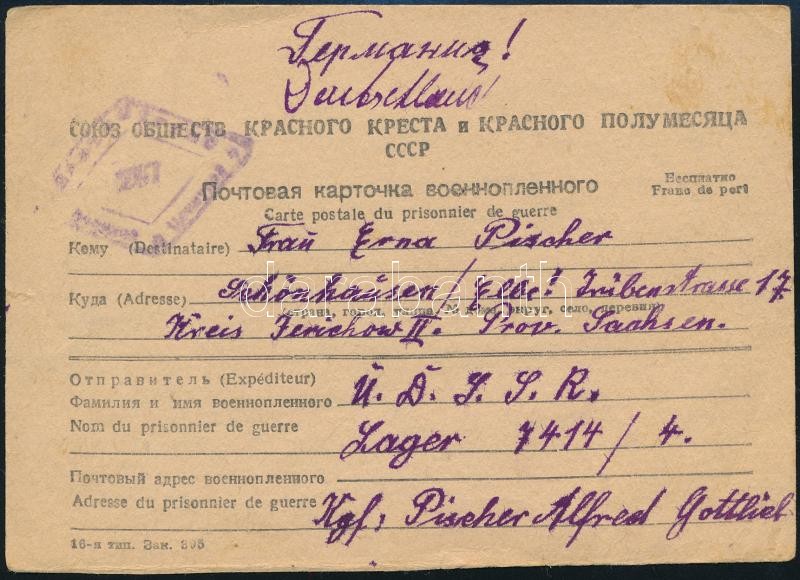 Германия!
Deutschland
СОЮЗ ОБЩЕСТВ КРАСНОГО КРЕСТА и КРАСНОГО ПОЛУМЕСЯЦА
СССР
Почтовая карточка военнопленного
Бесплатно
Carte postale du prisonnier de guerre
Franc de port
Кому (Destinataire) Frau Erna Pischer
Куда (Adresse) Schönhausen / Elbe! Trübenstrasse 17
(страна, город, улица, № дома, округ, село, деревня)
Kreis Jerichow II. Prov. Sachsen.
Отправитель (Expéditeur)
Фамилия и имя военнопленного U. D. S. S. R.
Nom du prisonnier de guerre Lager 7414 / 4.
Почтовый адрес военнопленного
Adresse du prisonnier de guerre Kgf: Pischer Alfred Gottlieb
16-я тип. Зак. 395
darabanth